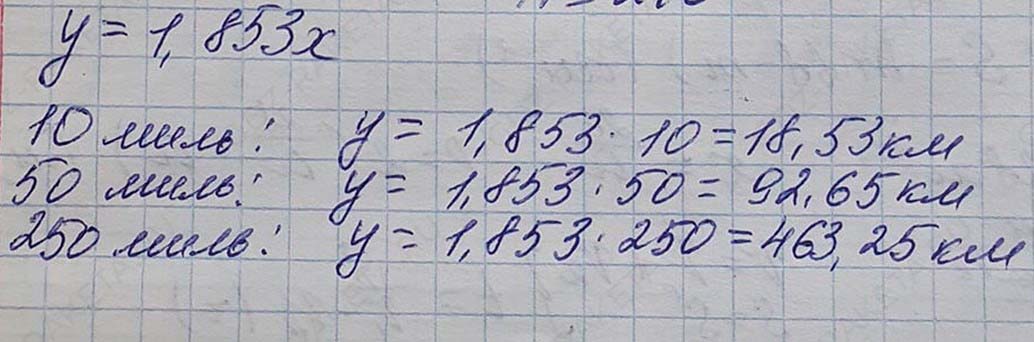 y = 1,853x
10 миль: y = 1,853 · 10 = 18,53 км
50 миль: y = 1,853 · 50 = 92,65 км
250 миль: y = 1,853 · 250 = 463,25 км